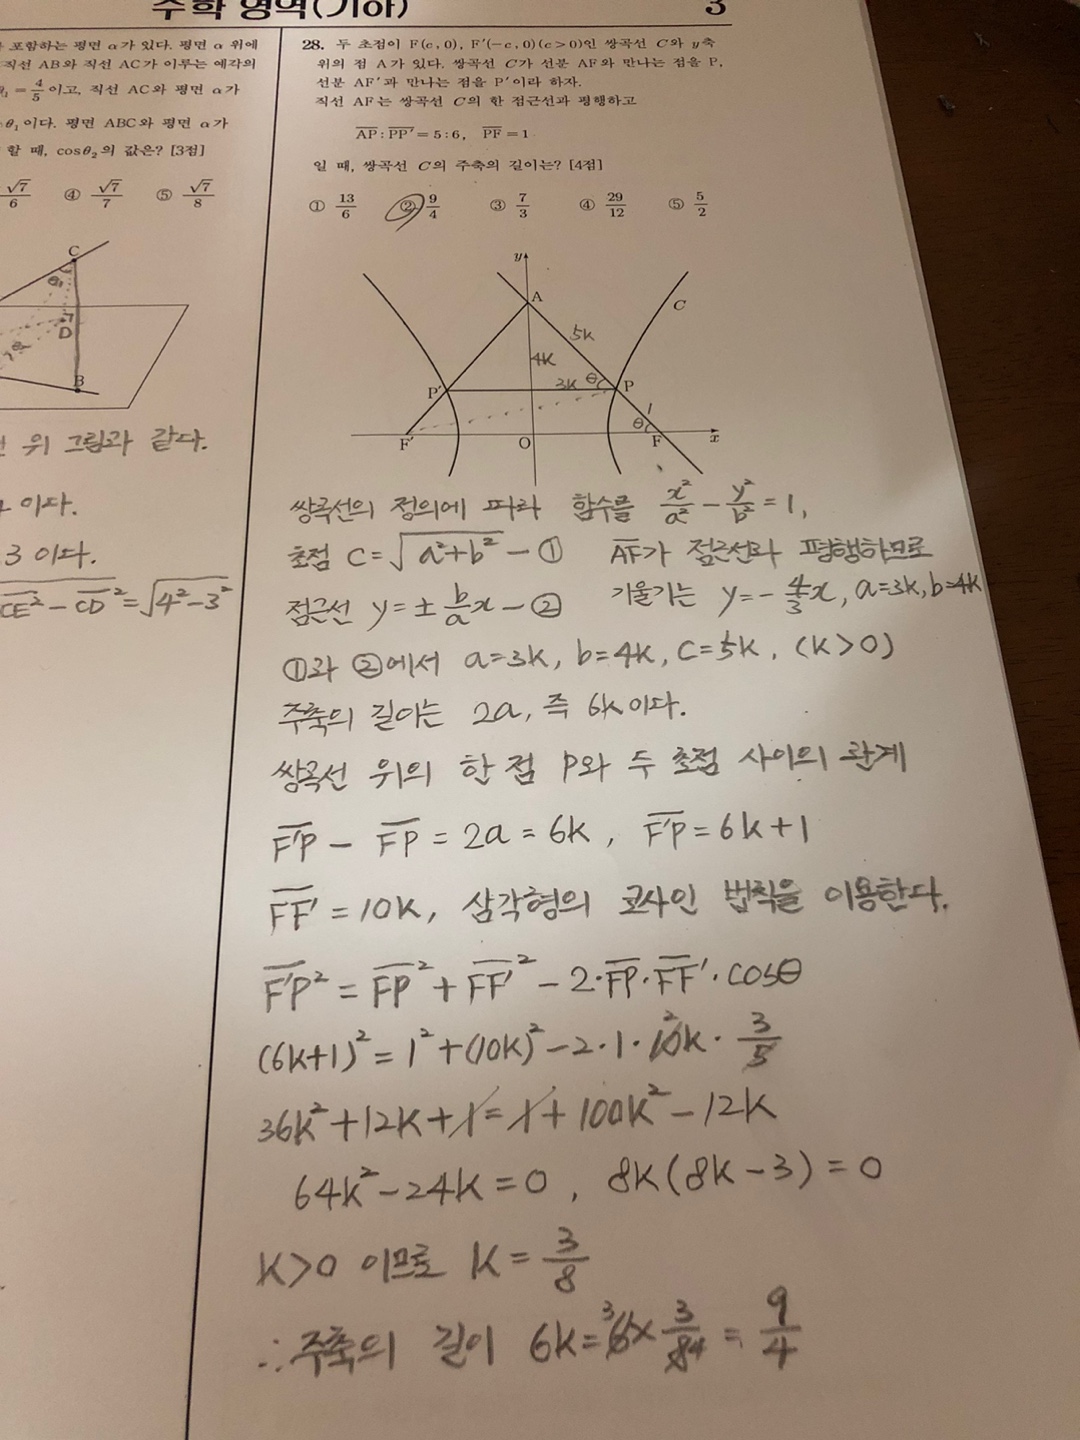 수학 영역(기하)
3
포함하는 평면 α가 있다. 평면 α 위에
직선 AB와 직선 AC가 이루는 예각의
=4/5이고, 직선 AC와 평면 α가
θ₁이다. 평면 ABC와 평면 α가
할 때, cosθ₂의 값은? [3점]
√7/6 ④ √7/7 ⑤ √7/8
C
D
B
위 그림과 같다.
이다.
3 이다.
CE² - CD² = √4²-3²
28. 두 초점이 F(c, 0), F′(−c, 0)(c>0)인 쌍곡선 C와 y축
위의 점 A가 있다. 쌍곡선 C가 선분 AF와 만나는 점을 P,
선분 AF′과 만나는 점을 P′이라 하자.
직선 AF는 쌍곡선 C의 한 점근선과 평행하고
AP : PP′ = 5 : 6, PF = 1
일 때, 쌍곡선 C의 주축의 길이는? [4점]
① 13/6 ② 9/4 ③ 7/3 ④ 29/12 ⑤ 5/2
y
A
C
5k
4k
3k θ
P′
P
1
θ
F′
O
F
x
쌍곡선의 정의에 따라 함수를 x²/a² - y²/b² = 1,
초점 C = √a²+b² - ① AF가 점근선과 평행하므로
점근선 y = ± b/a x - ② 기울기는 y = - 4/3 x, a=3k, b=4k
①과 ②에서 a=3k, b=4k, c=5k, (k>0)
주축의 길이는 2a, 즉 6k이다.
쌍곡선 위의 한 점 P와 두 초점 사이의 관계
F′P - FP = 2a = 6k, F′P = 6k+1
FF′ = 10k, 삼각형의 코사인 법칙을 이용한다.
F′P² = FP² + FF′² - 2·FP·FF′·cosθ
(6k+1)² = 1² + (10k)² - 2·1·10k · 3/5
36k² + 12k + 1 = 1 + 100k² - 12k
64k² - 24k = 0, 8k(8k-3) = 0
k>0 이므로 k = 3/8
∴ 주축의 길이 6k = 6 × 3/8 = 9/4